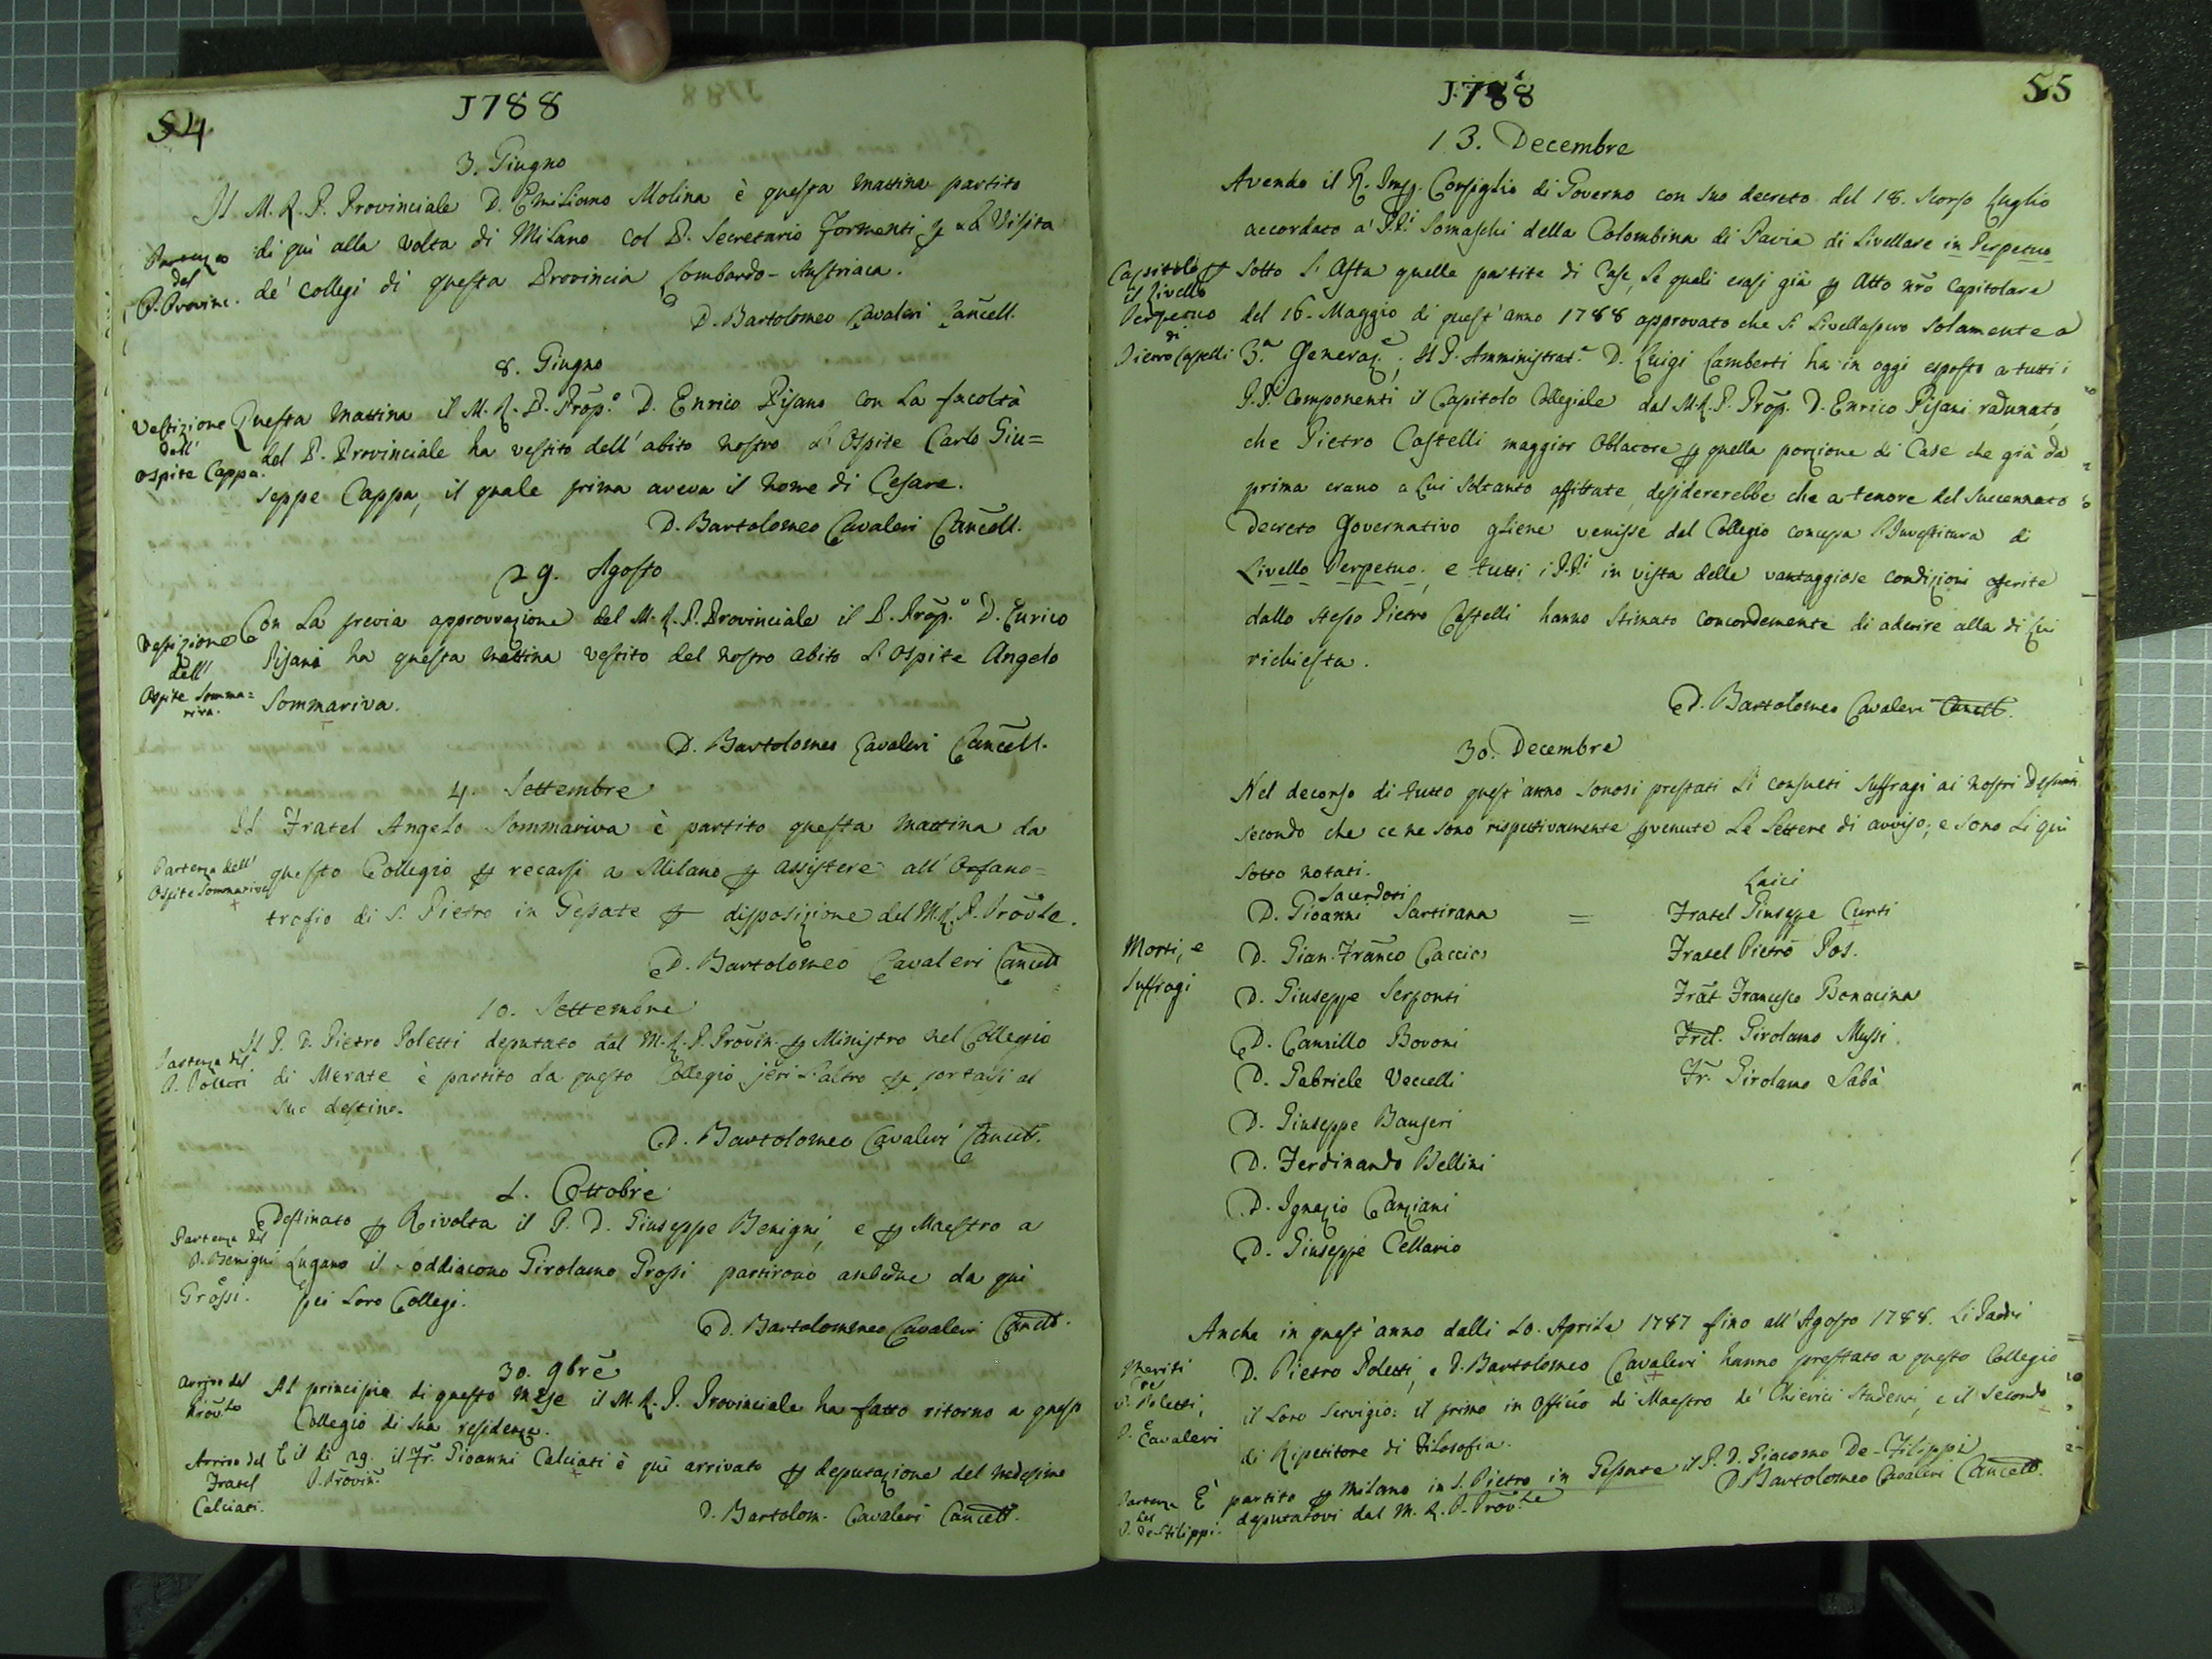 54
1788
3. Giugno
Il M. R. P. Provinciale D. Emiliano Molina è questa mattina partito
di quì alla volta di Milano col P. Secretario Formenti per la Visita
de' collegi di questa Provincia Lombardo-Austriaca.
Partenza
del
P. Provinc.
D. Bartolomeo Cavaleri Cancell.
8. Giugno
Vestizione
dell'
ospite Cappa.
Questa mattina il M. R. P. Prop.o D. Enrico Pisano con la facoltà
del P. Provinciale ha vestito dell'abito nostro l'Ospite Carlo Giu=
seppe Cappa, il quale prima aveva il nome di Cesare.
D. Bartolomeo Cavaleri Cancell.
29. Agosto
Vestizione
dell'
Ospite Somma=
riva.
Con la previa approvazione del M. R. P. Provinciale il P. Prop.o D. Enrico
Pisani ha questa mattina vestito del nostro abito l'Ospite Angelo
Sommariva.
D. Bartolomeo Cavaleri Cancell.
4. Settembre
Partenza dell'
Ospite Sommariva
Il Fratel Angelo Sommariva è partito questa mattina da
questo Collegio per recarsi a Milano per assistere all'Orfano=
trofio di S. Pietro in Gessate per disposizione del M. R. P. Provle.
D. Bartolomeo Cavaleri Cancell
10. Settembre
Partenza del
P. Poletti
Il P. D. Pietro Poletti deputato dal M. R. P. Provin. per Ministro nel Collegio
di Merate è partito da questo Collegio jeri l'altro per portarsi al
suo destino.
D. Bartolomeo Cavaleri Cancell.
1. Ottobre
Partenza del
P. Benigni
e
Grossi.
Destinato per Rivolta il P. D. Giuseppe Benigni, e per Maestro a
Lugano il Soddiacono Girolamo Grossi partirono ambedue da qui
pei loro Collegi.
D. Bartolommeo Cavaleri Cancell.
30. 9bre
Arrivo del
Provle
Al principio di questo mese il M. R. P. Provinciale ha fatto ritorno a questo
Collegio di sua residenza.
Arrivo del
Fratel
Calciati.
E il dì 29. il Fr. Gioanni Calciati è quì arrivato per deputazione del medesimo
P. Provin.
D. Bartolom. Cavaleri Cancell.
1788
55
13. Decembre
Avendo il R. Imp. Consiglio di Governo con suo decreto del 18. scorso Luglio
accordato a' P.Pi Somaschi della Colombina di Pavia di livellare in Perpetuo
Capitolo per
il Livello
Perpetuo
di
Pietro Castelli
sotto l'Asta quelle partite di Case, le quali erasi già per Atto nro Capitolare
del 16. Maggio di quest'anno 1788 approvato che si livellassero solamente a
3.a Generaz.e; Il P. Amministrat.e D. Luigi Lamberti ha in oggi esposto a tutti i
P.Pi componenti il Capitolo Collegiale dal M. R. P. Prop. D. Enrico Pisani radunato,
che Pietro Castelli maggior Oblatore per quella porzione di Case che già da
prima erano a lui soltanto affittate, desidererebbe che a tenore del succennato
Decreto Governativo gliene venisse dal Collegio concessa l'Investitura di
Livello Perpetuo, e tutti i P.Pi in vista delle vantaggiose condizioni oferite
dallo stesso Pietro Castelli hanno stimato concordemente di aderire alla di lui
richiesta.
D. Bartolomeo Cavaleri Cancell.
30. Decembre
Nel decorso di tutto quest'anno sonosi prestati li consueti suffragi ai nostri Defunti
secondo che ce ne sono rispettivamente pervenute le lettere di avviso, e sono li qui
sotto notati.
Morti, e
Suffragi
Sacerdoti
D. Gioanni Sartirana =
D. Gian-Franco Caccia
D. Giuseppe Serponti
D. Camillo Bovoni
D. Gabriele Vecelli
D. Giuseppe Banseri
D. Ferdinando Bellini
D. Ignazio Canziani
D. Giuseppe Cellario
Laici
Fratel Giuseppe Curti
Fratel Pietro Pos.
Frat Francesco Bonacina
Frel. Girolamo Mussi
Fr. Girolamo Sabà
Meriti
de'
P. Poletti,
e
P. Cavaleri
Anche in quest'anno dalli 10. Aprile 1787 fino all'Agosto 1788. li Padri
D. Pietro Poletti, e D. Bartolomeo Cavaleri hanno prestato a questo Collegio
il loro servigio: il primo in officio di Maestro de' Chierici studenti, e il secondo
di Ripetitore di Filosofia.
Partenza
del
P. De-Filippi.
E' partito per Milano in S. Pietro in Gessate il P. D. Giacomo De-Filippi
deputatovi dal M. R. P. Provle
D. Bartolomeo Cavaleri Cancell.